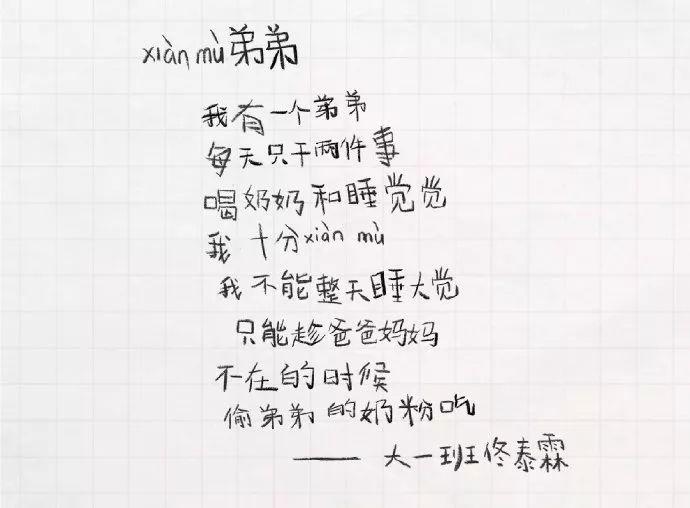 xiàn mù弟弟
我有一个弟弟
每天只干两件事
喝奶奶和睡觉觉
我十分xiàn mù
我不能整天睡大觉
只能趁爸爸妈妈
不在的时候
偷弟弟的奶粉吃
——大一班佟泰霖